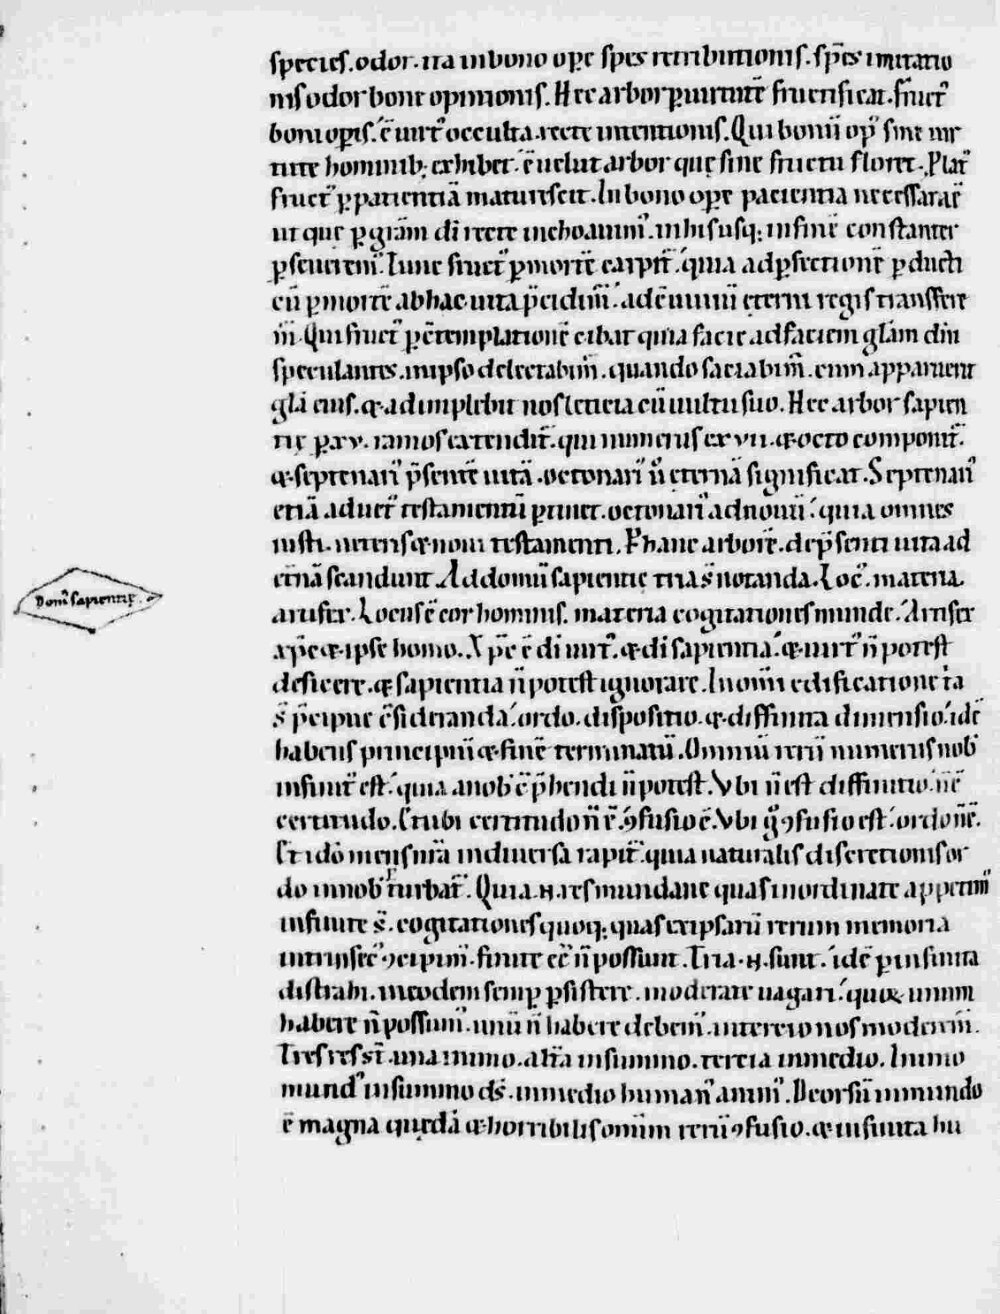 species. odor. ita in bono op̄e spes retributionis. sp̄es imitatio
nis odor bone opinionis. Hec arbor p̱ uirtutē fructificat. Fruct᷒
boni op̄is. ē uirt᷒ occulta recte intentionis. Qui bonū op᷒ sine uir
tute hominib; exhibet. ē uelut arbor quę sine fructu floret. Plat᷒
fruct᷒ p̱ patientiā maturescit. In bono op̄e pacientia necessaria ē
ut que p̱ gr̄am di recte inchoauim᷒. in his usq; in finē constanter
p̱seuerem᷒. Tunc fruct᷒ p̱ mortē carpit᷒. quia ad p̱fectionē p̱ducti
cū p̱ mortē ab hac uita p̄cidim᷒. ad cōuiuiū ęterni regis transfere
m᷒. Qui fruct᷒ p̱ cōtemplationē cibat quia facie ad faciem gl̄am din̄i
speculantes. in ipso delectabim᷒. quando saciabim᷒. cum apparuerit
gl̄a eius. & adimplebit nos leticia cū uultu suo. Hec arbor sapien
tię p̱ xv. ramos extendit᷒. qui numerus ex vii. & octo componit᷒.
& septenari᷒ p̄sentē uitā. octonari᷒ ū ęternā significat. Septenari᷒
etiā ad uet᷒ testamentū p̱tinet. octonari᷒ ad nouū. quia omnes
iusti. ueteris & noui testamenti. P̱ hanc arborē. de p̄senti uita ad
etnā scandunt. Ad domū sapientie tria s̄ notanda. Loc᷒. materia.
artifex. Locus ē cor hominis. materia cogitationes munde. Artifex
Dom᷒ sapientię.
xp̄c & ipse homo. Xp̄c ē di uirt᷒. & di sapientia. & uirt᷒ n̄ potest
deficere. & sapientia n̄ potest ignorare. In om̄i edificatione tria
s̄ p̄cipue cōsideranda. ordo. dispositio. & diffinita dimensio. idē
habens principiū & finē terminatū. Omniū rerū numerus nob᷒
infinit᷒ est. quia a nob᷒ cōp̄hendi n̄ potest. Vbi n̄ est diffinitio. n̄ ē
certitudo. Et ubi certitudo n̄ ē. ꝯfusio ē. Vbi g᷒ ꝯfusio est. ordo n̄ ē.
Et idō mens n̄ra in diuersa rapit᷒. quia naturalis discretionis or
do in nob᷒ turbat᷒. Quia .n. res mundane quas inordinate appetim᷒
infinite s̄. cogitationes quoq; quas ex ipsarū rerum memoria
intrinsec᷒ ꝯcipim᷒. finite ēē n̄ possunt. Tria .n. sunt. idē p̱ infinita
distrahi. in eodem semp̱ p̱sistere. moderate uagari. quo& unum
habere n̄ possum᷒. unū n̄ habere debem᷒. in tercio nos moderem᷒.
Tres res st̄. una in imo. alt̄a in summo. tercia in medio. In imo
mund᷒ in summo ds̄. in medio human᷒ anim᷒. Deorsū in mundo
ē magna quędā & horribilis omniū rerū ꝯfusio. & infinita hu